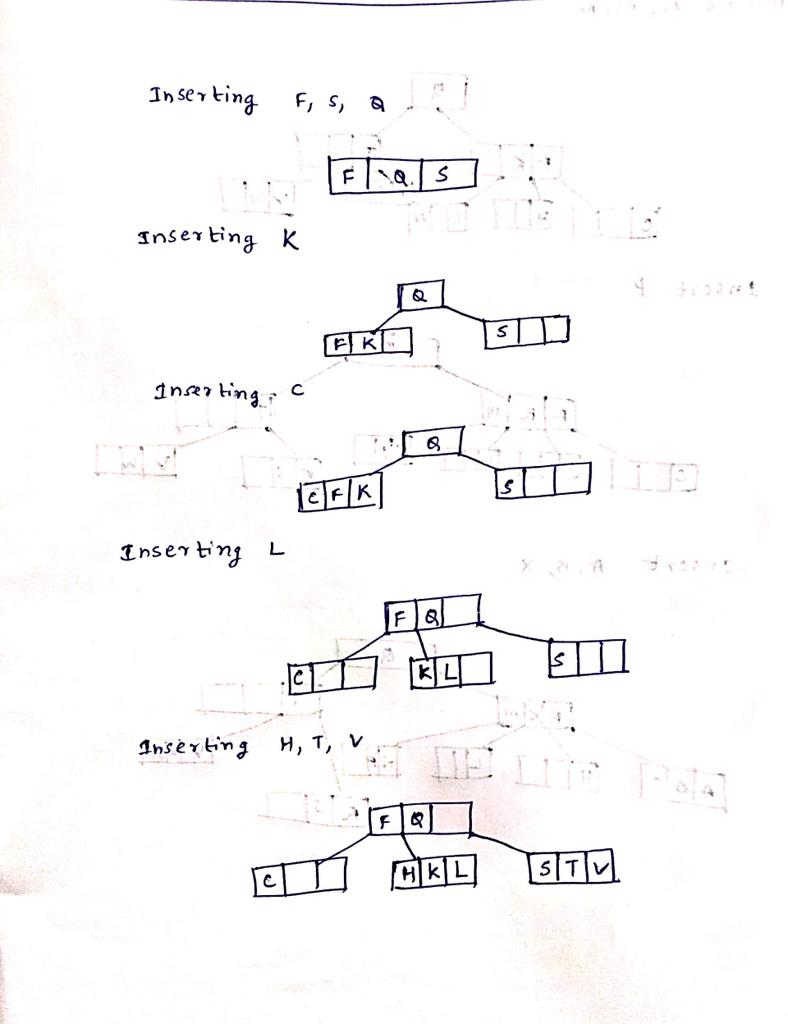 Inserting F, S, Q
F Q S
Inserting K
Q
F K S
Inserting C
Q
C F K S
Inserting L
F Q
C K L S
Inserting H, T, V
F Q
C H K L S T V